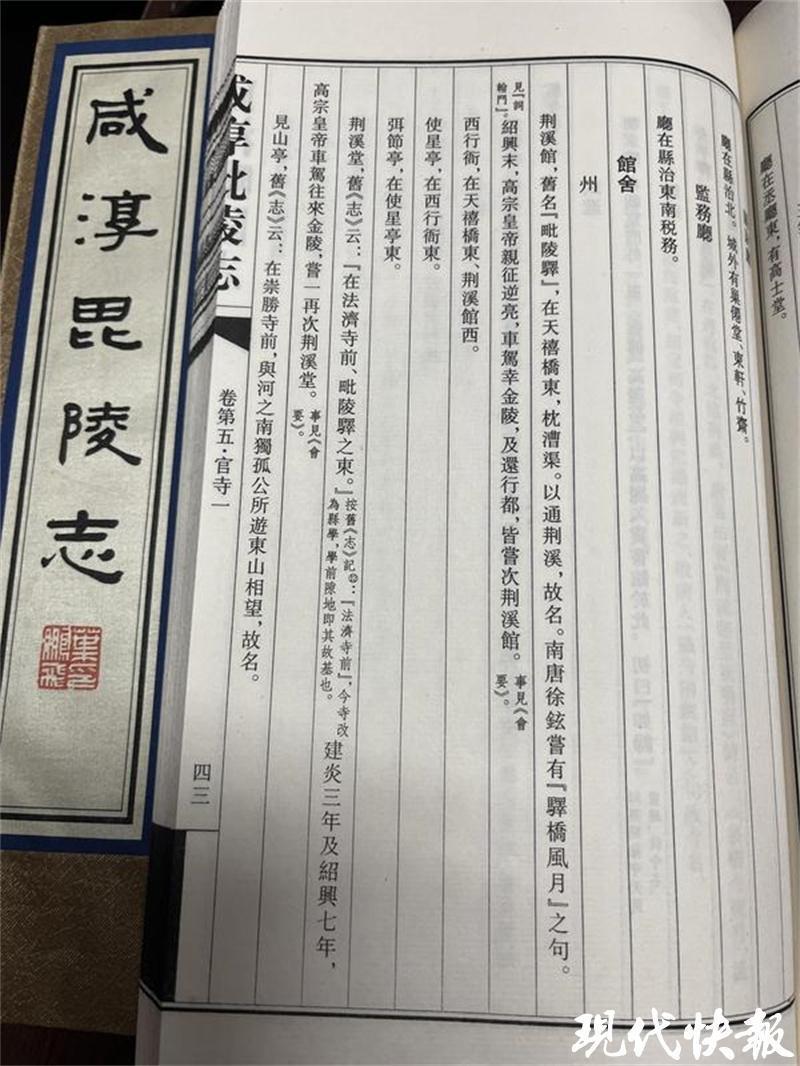 咸淳毗陵志
董氏鵬飛
廳在丞廳東，有高士堂。
廳在縣治北。城外有巢僊堂、東軒、竹齋。
監務廳
廳在縣治東南稅務。
館舍
州
荆溪館，舊名『毗陵驛』，在天禧橋東，枕漕渠。以通荆溪，故名。南唐徐鉉嘗有『驛橋風月』之句。
見『詞翰門』。紹興末，高宗皇帝親征逆亮，車駕幸金陵，及還行都，皆嘗次荆溪館。事見《會要》。
西行衙，在天禧橋東、荆溪館西。
使星亭，在西行衙東。
弭節亭，在使星亭東。
荆溪堂，舊《志》云：『在法濟寺前、毗陵驛之東。』按舊《志》記：『法濟寺前』，今寺改為縣學，學前隙地即其故基也。建炎三年及紹興七年，
高宗皇帝車駕往來金陵，嘗一再次荆溪堂。事見《會要》。
見山亭，舊《志》云：在崇勝寺前，與河之南獨孤公所遊東山相望，故名。
咸淳毗陵志
卷第五·官寺一
四三
現代快報